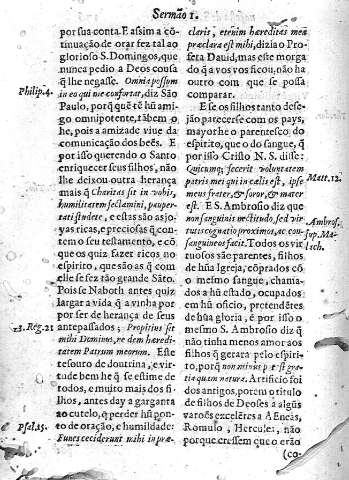 Sermão 1.
por sua conta. E assim a cõ-
tinuação de orar fez tal ao
glorioso S. Domingos, que
nunca pedio a Deos cousa
q̃ lhe negasse. Omnia possum
in eo qui me confortat, diz São
Philip. 4.
Paulo, porq̃ quẽ tẽ hũ ami-
go omnipotente, tãbem o
he, pois a amizade viue da
comunicação dos beẽs. E
por isso querendo o Santo
enriquecer seus filhos, não
lhe deixou outra herança
mais q̃ Charitas sit in vobis,
humilitatem sectamini, pauper-
tati studere, e estas são as jo-
yas ricas, e preciosas q̃ con-
tem o seu testamento, e cõ
que os quiz fazer ricos no
espirito, que são as q̃ com
elle se fez tão grande Sãto.
Pois se Naboth antes quiz
largar a vida q̃ a vinha por
por ser de herança de seus
antepassados; Propitius sit
3. Reg. 21
mihi Dominus, ne dem hæredi-
tatem Patrum meorum. Este
tesouro de doutrina, e vir-
tude bem he q̃ se estime de
todos, e muito mais dos fi-
lhos, antes day a garganta
ao cutelo, q̃ perder hũ pon-
to de oração, e humildade:
Psal. 15.
Funes ceciderunt mihi in præ-
claris, etenim hæreditas mea
præclara est mihi, dizia o Pro-
feta Dauid, mas este morga
do q̃ a vos vos ficou, não ha
outro com que se possa
comparar.
E se os filhos tanto dese-
jão parecerse com os pays,
mayor he o parentesco do
espirito, que o do sangue, q̃
por isso Cristo N. S. disse:
Quicunq; fecerit voluntatem
patris mei qui in cælis est, ipse
Matt. 12.
meus frater, & soror, & mater
est. E S. Ambrosio diz que
non sanguinis rectitudo, sed vir-
tutis cognatio proximos, ac con-
Ambros.
sup. Ma-
lach.
sanguineos facit. Todos os vir
tuosos são parentes, filhos
de hũa Igreja, cõprados cõ
o mesmo sangue, chama-
dos a hũ estado, ocupados
em hũ oficio, pretendẽtes
de hũa gloria, é por isso o
mesmo S. Ambrosio diz q̃
não tinha menos amor aos
filhos q̃ gerara pelo espiri-
to, porq̃ non minus potest gra-
tia quam natura. Artificio foi
dos antigos, porem o titulo
de filhos de Deoses a algũs
varoẽs excelẽtes a Eneas,
Romulo, Hercules, não
porque cressem que o erão
(co-